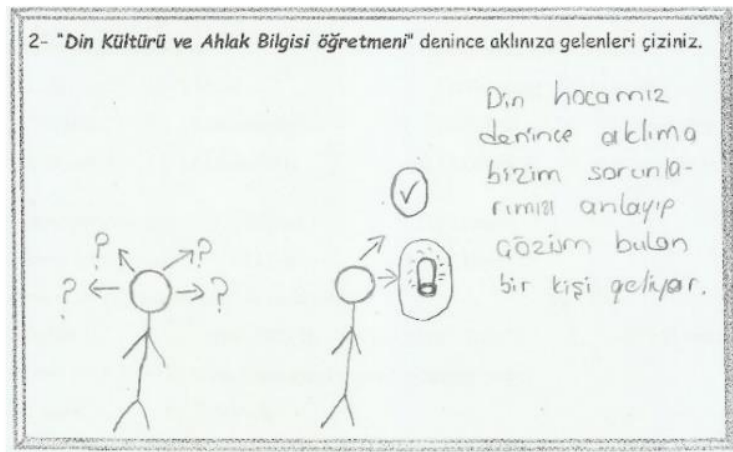 2- "Din Kültürü ve Ahlak Bilgisi öğretmeni" denince aklınıza gelenleri çiziniz.
Din hocamız
denince aklıma
bizim sorunla-
rımızı anlayıp
çözüm bulan
bir kişi geliyor.
? ?
? ?